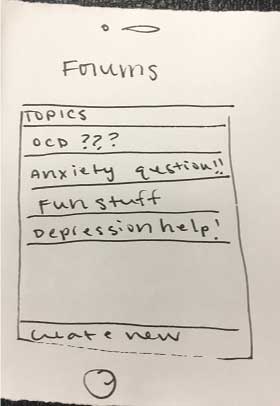 Forums
TOPICS
OCD ???
Anxiety question!!
Fun stuff
Depression help!
create new